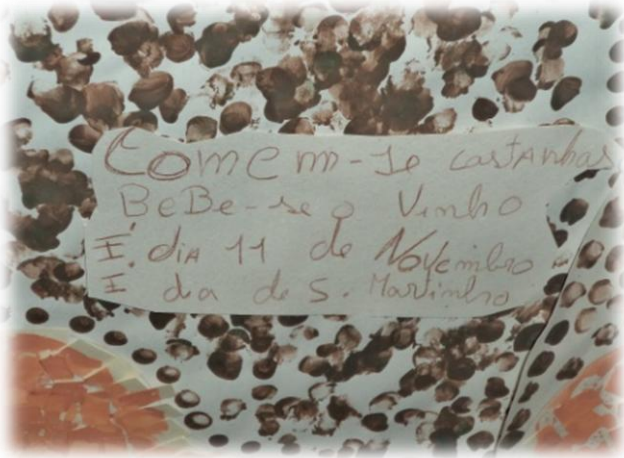 Comem-se castanhas
BeBe-se o Vinho
É dia 11 de Novembro
É dia de S. Martinho